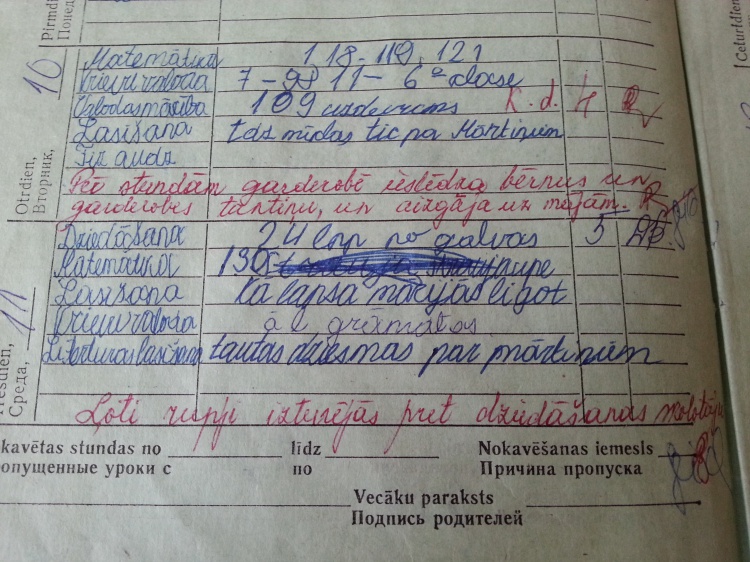 Pirmdi
Понед
Otrdien, Вторник, 10
Matemātika 118-119, 121
Krievu valoda 7-98 11- 6 ar klase
109 uzdevums K. d. 4
Lasīšana tdz mīdas tic pa Mārtiņiem
Fiz audz
Pēc stundām garderobē ieslēdza bērnus un
garderobes tantiņu, un aizgāja uz mājām.
Trešdien, Среда, 11
Dziedāšana 24 lpp no galvas 5
Matemātika 130
Lasīšana Kā lapsa mācījās lidot
Krievu valoda grāmatas
Literturas lasīšana tautas dziesmas par mārtiņiem
Ļoti rupji izturējās pret dziedāšanas skolotāju
kavētas stundas no līdz Nokavēšanas iemesls
опущенные уроки с по Причина пропуска
Vecāku paraksts
Подпись родителей
Ceturtdi